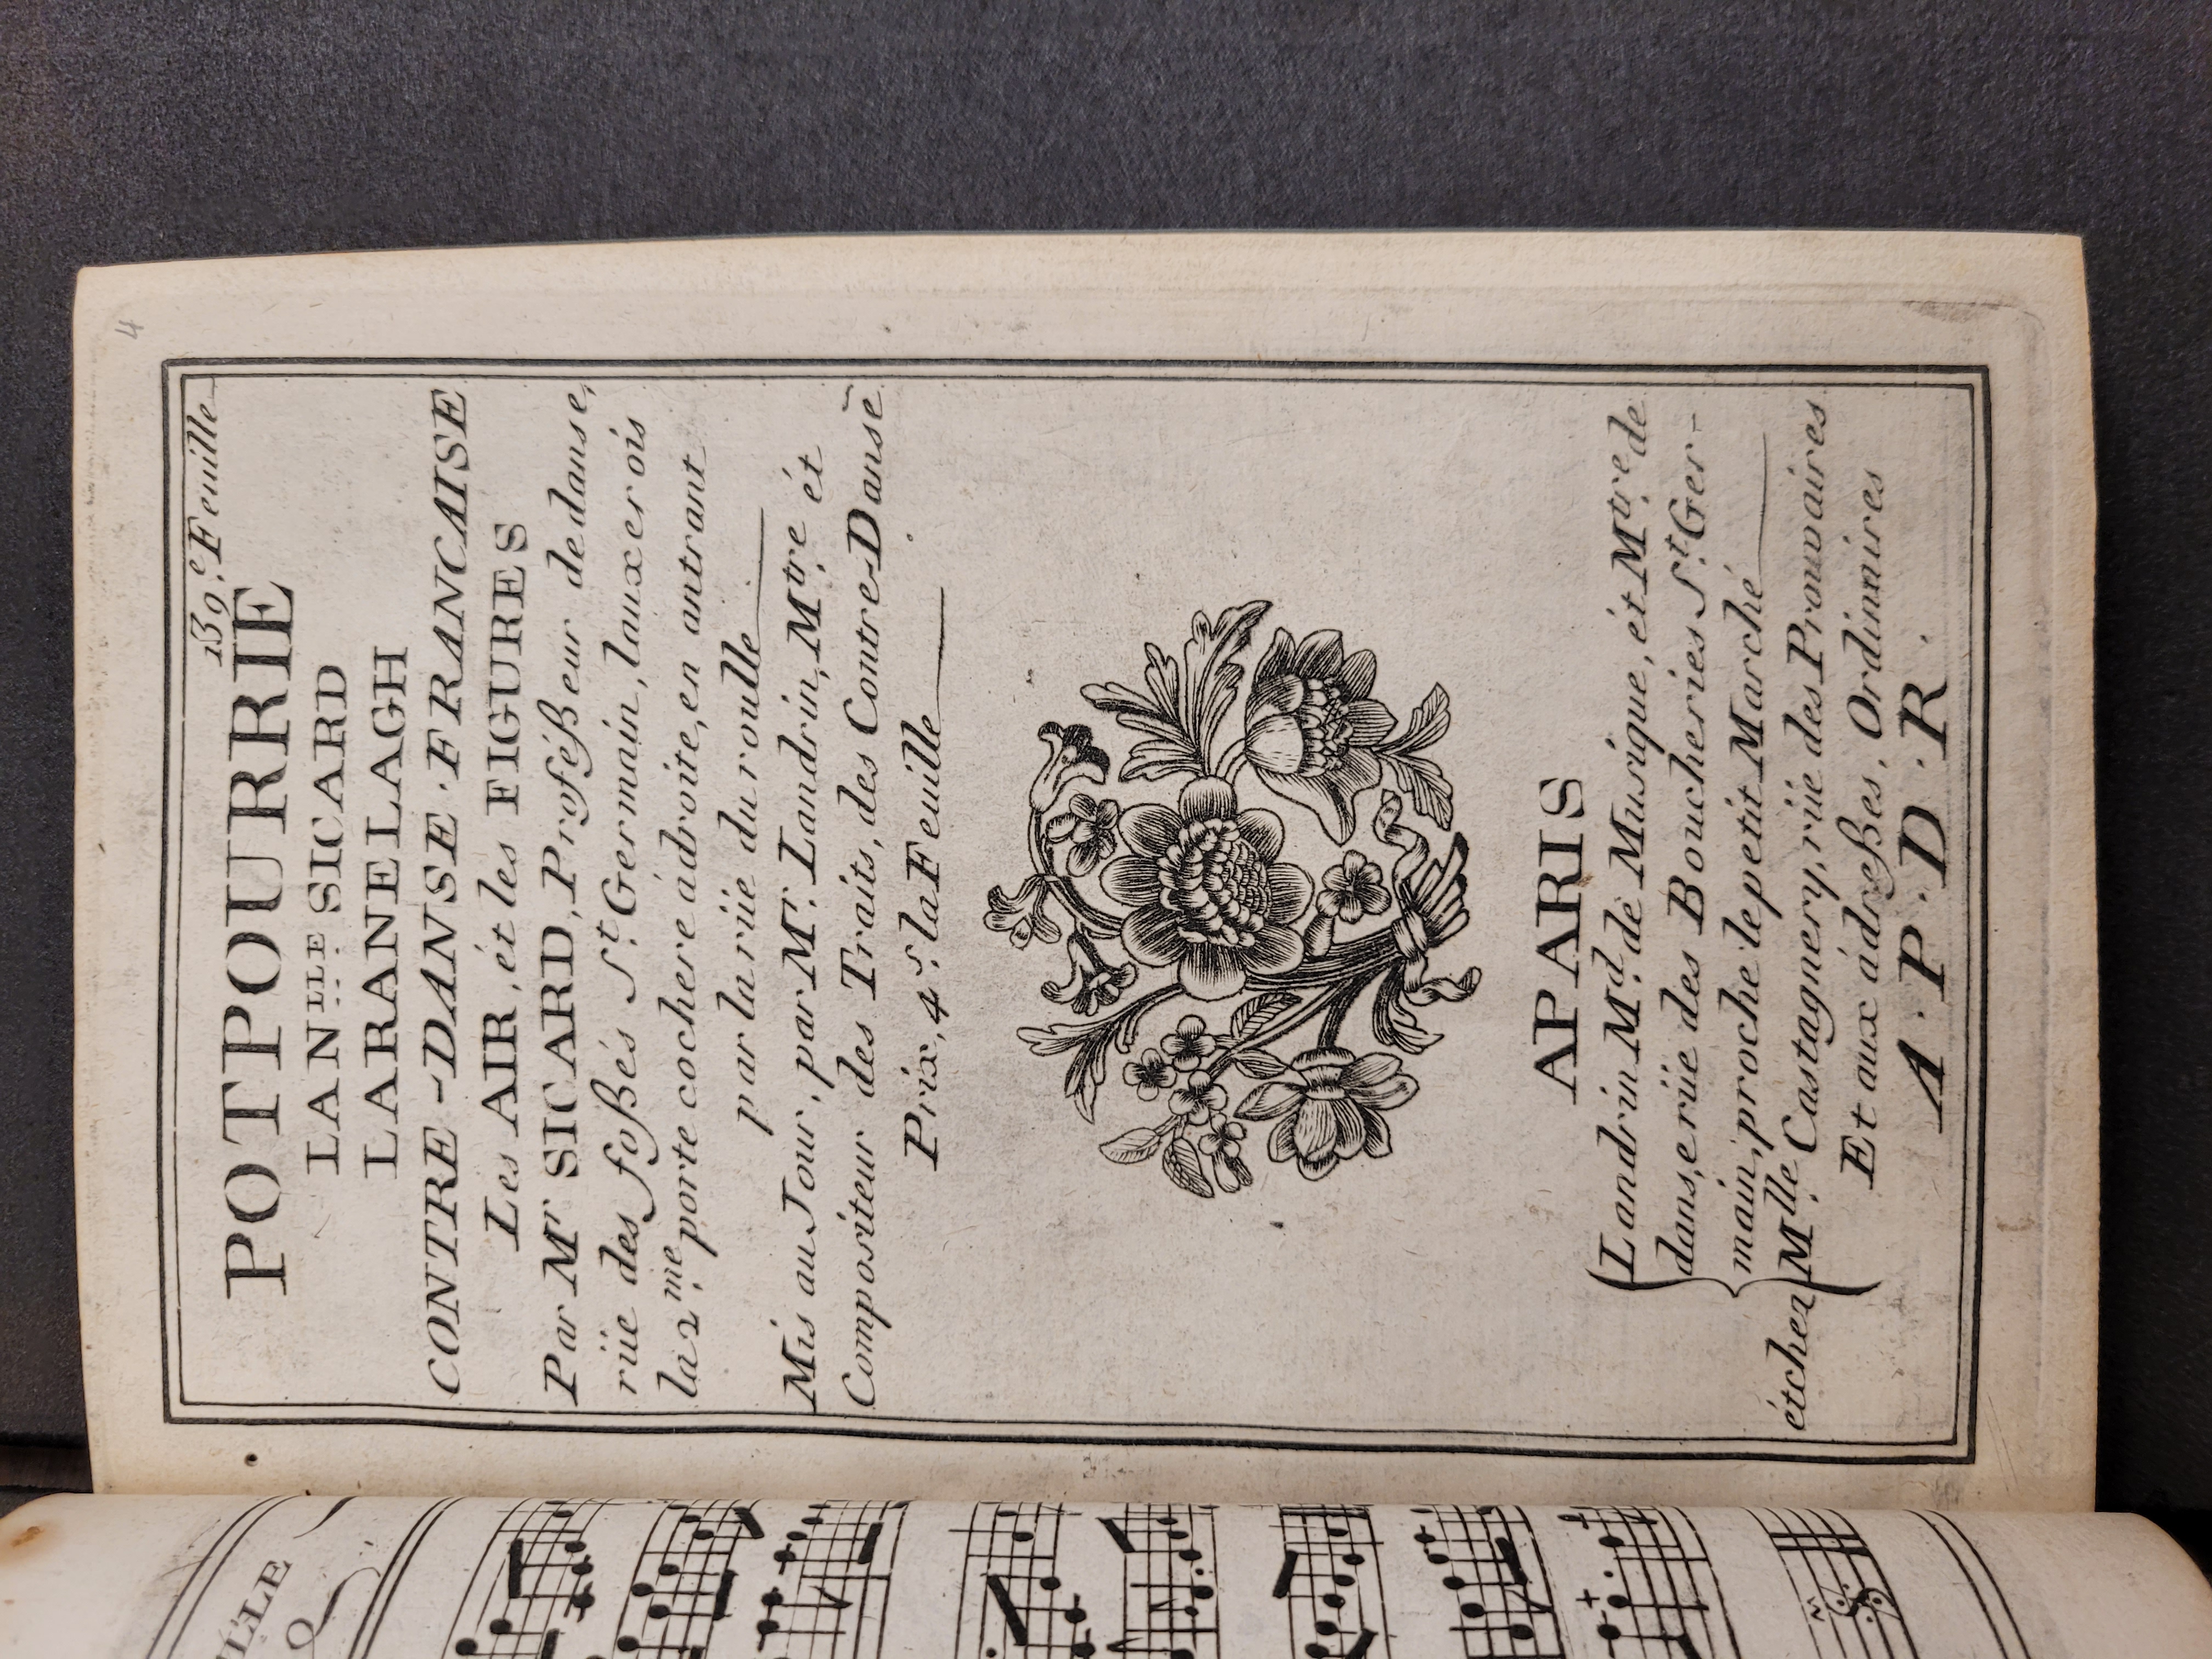 4
139.e Feuille
POTPOURRIE
LAN.LLE SICARD
LARANELAGH
CONTRE-DANSE.FRANCAISE
Les AIR, ét les FIGURES
Par Mr SICARD, Proféßeur de danse,
rüe des foßés St. Germain, lauxcerois
la 2.me porte cochere ádroite, en antrant
par la rüe du roulle
Mis au Jour, par Mr. Landrin, Mtre. ét
Compositeur des Traits, des Contre-Danse
Prix, 4 s. la Feuille
APARIS
Landrin Md. de Musique, ét Mtre. de
dans,e rüe des Boucheries St. Ger-
main, proche le petit Marché
étchez Mlle. Castagnery, rüe des Prouvaires
Et aux ádreßes, Ordinaires
A.P.D.R.